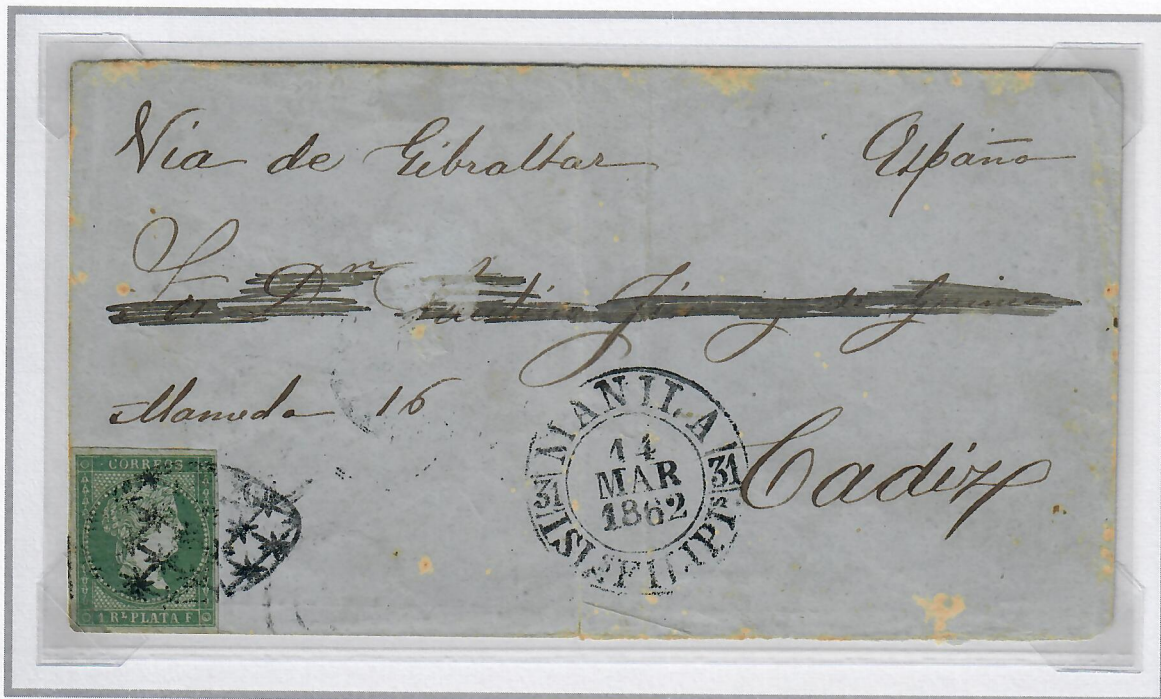 Via de Gibraltar España
Sr Dn
Alameda 16
Cadiz
MANILA
31 31
14
MAR
1862
ISLS FILIPIS
CORREOS
1 RL PLATA F